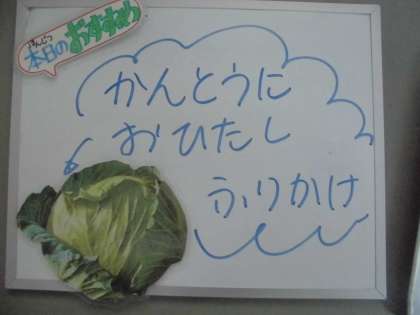 ほんじつ
本日の
おすすめ
かんとうに
おひたし
ふりかけ